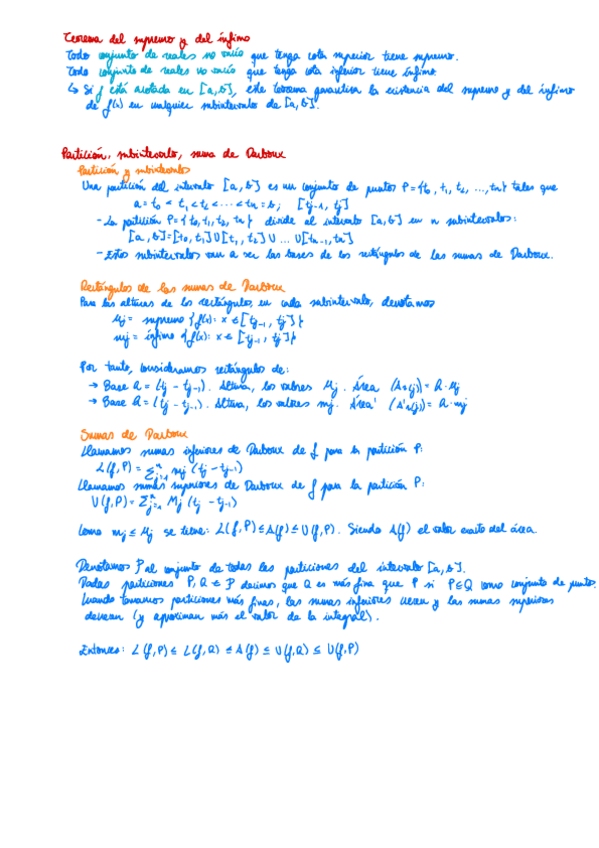 Teorema del supremo y del ínfimo
Todo conjunto de reales no vacío que tenga cota superior tiene supremo.
Todo conjunto de reales no vacío que tenga cota inferior tiene ínfimo.
↳ Si f está acotada en [a,b], este teorema garantiza la existencia del supremo y del ínfimo
de f(x) en cualquier subintervalo de [a,b].
Partición, subintervalo, suma de Darboux
Partición y subintervalos
Una partición del intervalo [a,b] es un conjunto de puntos P={t₀, t₁, t₂, ..., tn} tales que
a = t₀ < t₁ < t₂ < ... < tn = b; [tj-1, tj]
- La partición P={t₀, t₁, t₂, tn} divide al intervalo [a,b] en n subintervalos:
[a,b]=[t₀, t₁]∪[t₁, t₂]∪ ... ∪[tn-1, tn]
- Estos subintervalos van a ser las bases de los rectángulos de las sumas de Darboux.
Rectángulos de las sumas de Darboux
Para las alturas de los rectángulos, en cada subintervalo, denotamos
Mj = supremo {f(x): x ∈ [tj-1, tj]}
mj = ínfimo {f(x): x ∈ [tj-1, tj]}
Por tanto, consideramos rectángulos de:
→ Base A = (tj - tj-1). Altura, los valores Mj. Área (As(j)) = A·Mj
→ Base A = (tj - tj-1). Altura, los valores mj. Área' (A's(j)) = A·mj
Sumas de Darboux
Llamamos sumas inferiores de Darboux de f para la partición P:
L(f,P) = Σⁿj=1 mj (tj - tj-1)
Llamamos sumas superiores de Darboux de f para la partición P:
U(f,P) = Σⁿj=1 Mj (tj - tj-1)
Como mj ≤ Mj se tiene: L(f,P) ≤ A(f) ≤ U(f,P). Siendo A(f) el valor exacto del área.
Denotamos P al conjunto de todas las particiones del intervalo [a,b].
Dadas particiones P, Q ∈ P decimos que Q es más fina que P si P⊆Q como conjunto de punto.
Cuando tomamos particiones más finas, las sumas inferiores crecen y las sumas superiores
decrecen (y aproximan más el valor de la integral).
Entonces: L(f,P) ≤ L(f,Q) ≤ A(f) ≤ U(f,Q) ≤ U(f,P)